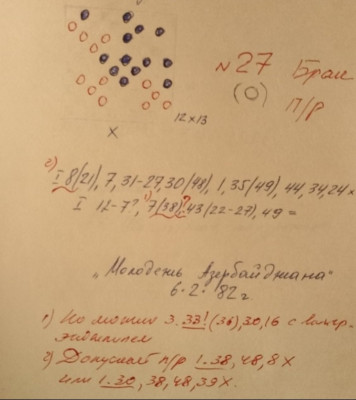 №27 Брак
(О) п/р
12x13
X
2) I 8(21), 7, 31-27, 30(48), 1, 35(49), 44, 34, 24 x
I 12-7?, 7(38)! 43(22-27), 49 =
"Молодежь Азербайджана"
6.2.82г.
1) Но можия 3.33! (36), 30, 16 с
2) Допускает п/р 1.38, 48, 8 X
или 1.30, 38, 48, 39 X.